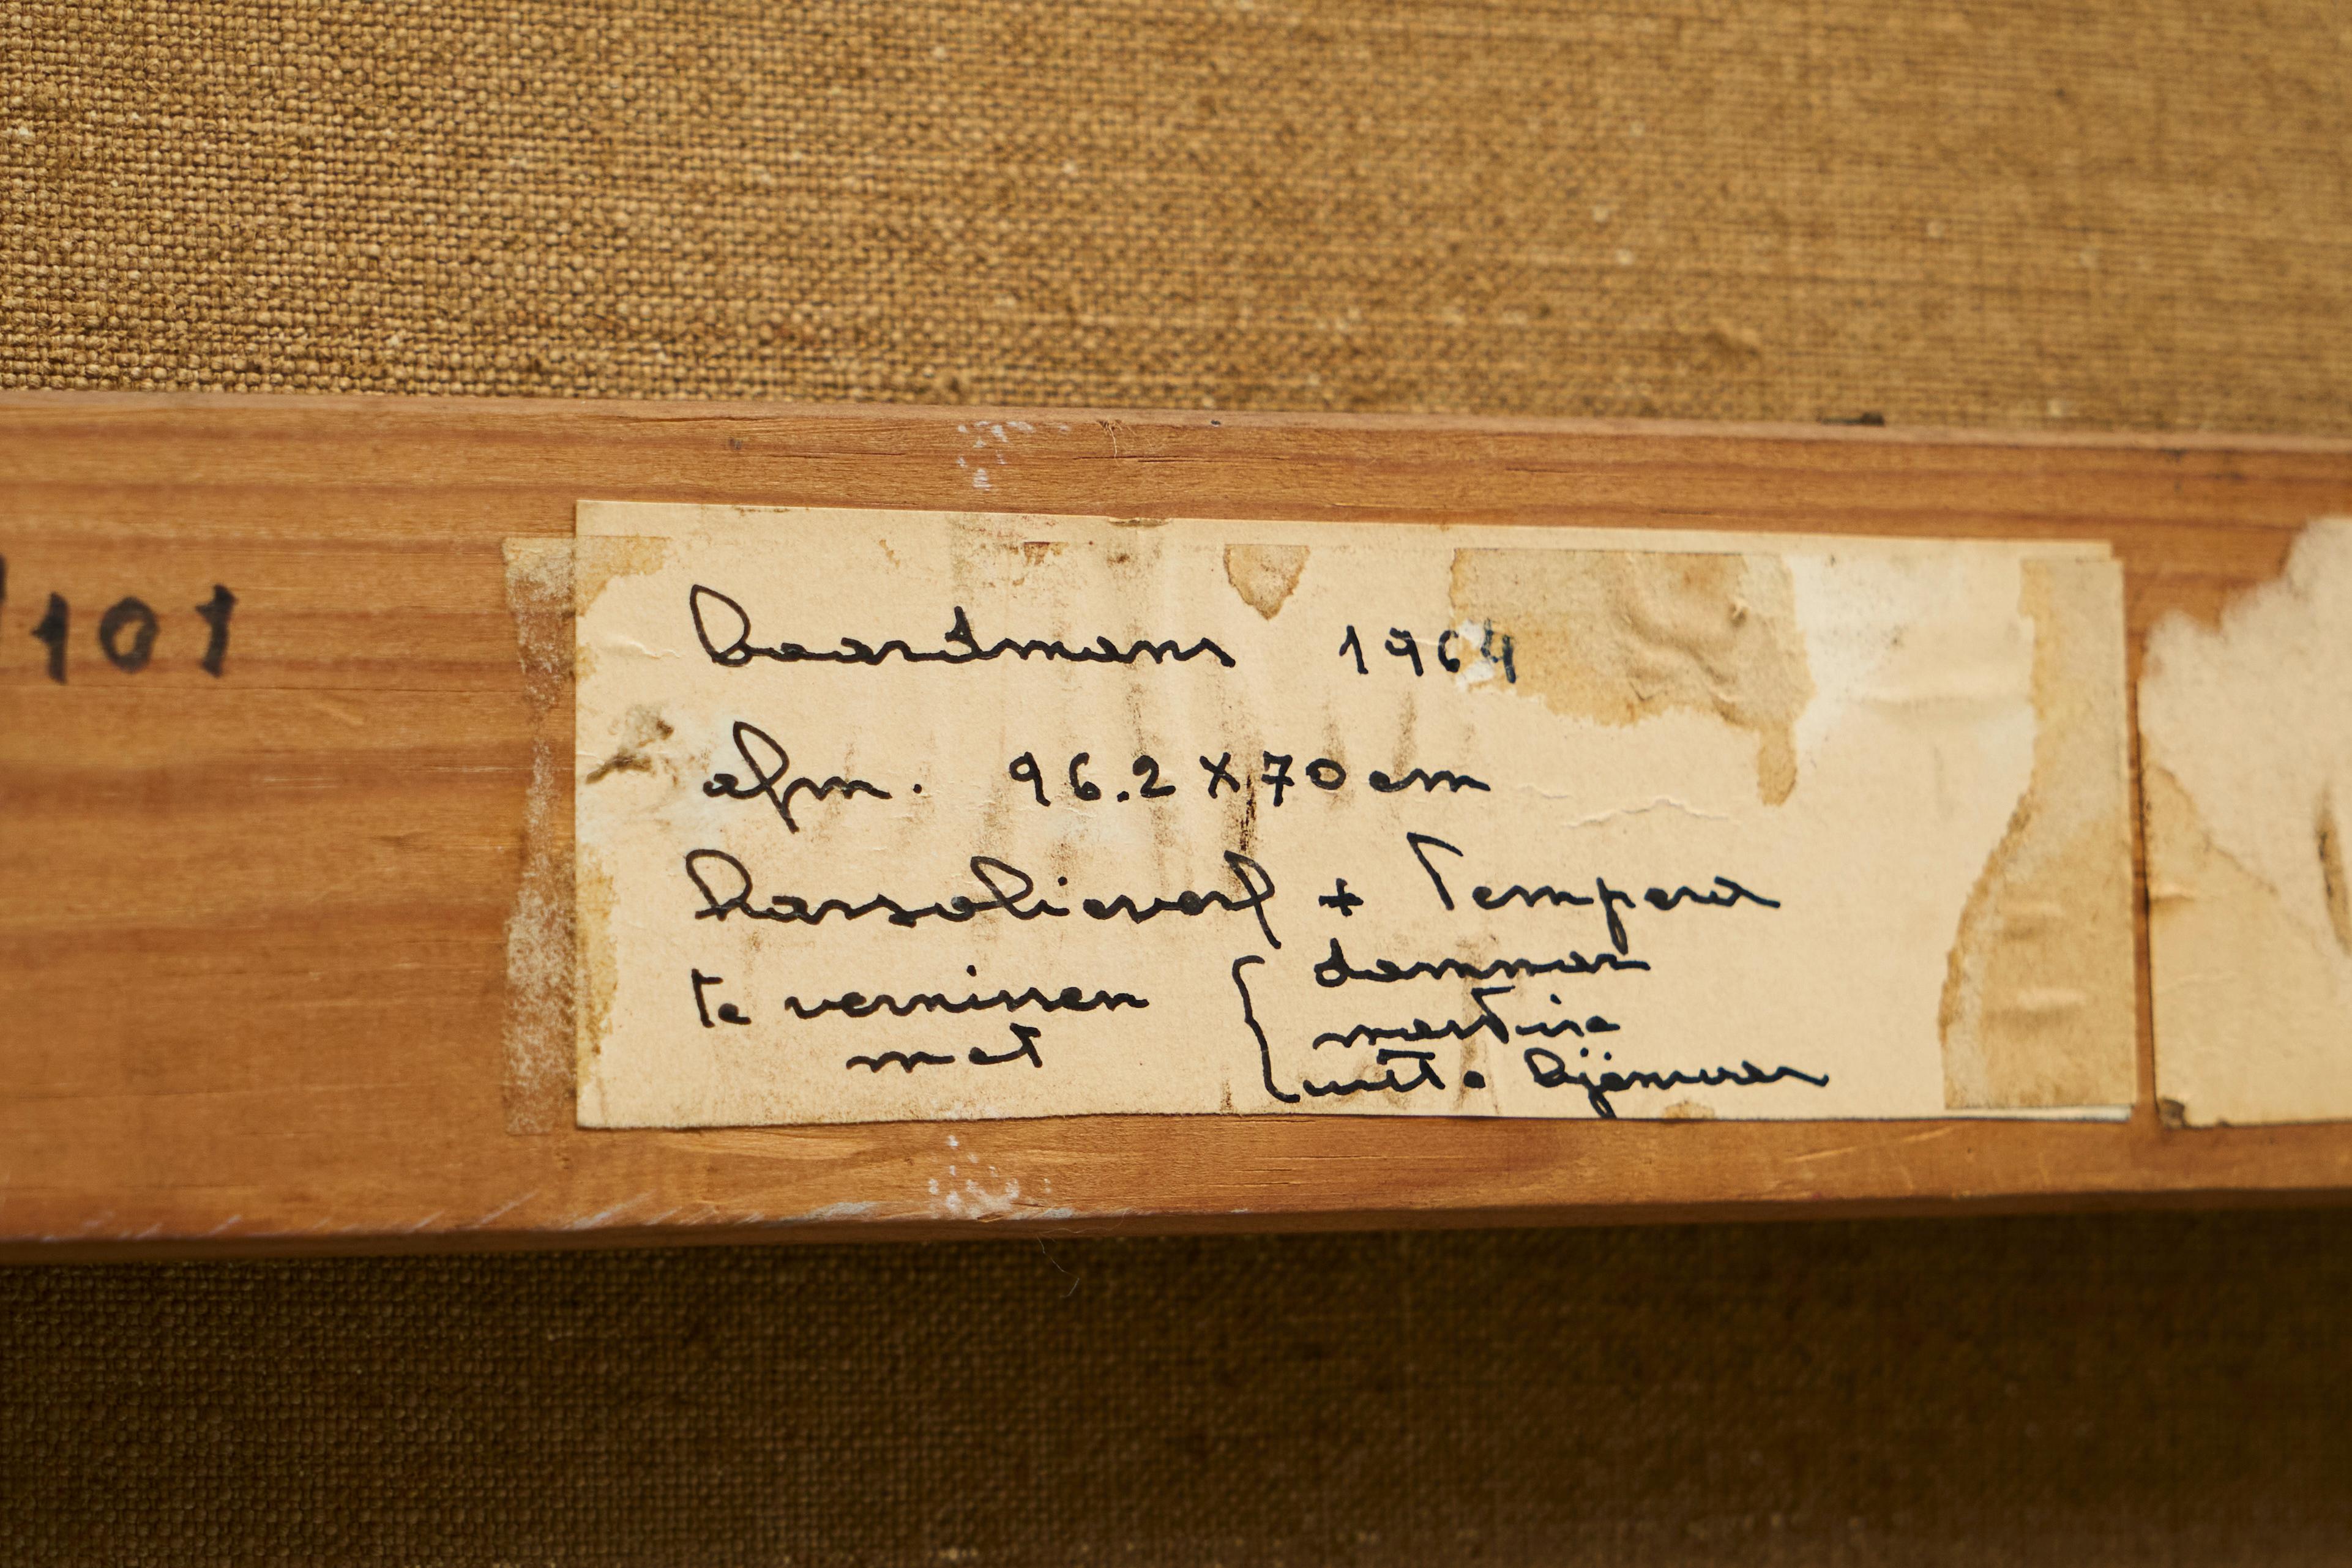 101
baardmans 1964
afm. 96.2 X 70 cm
harsolieverf + Tempera
te vernissen
met
{ dammar
mastix
witte bijenwas